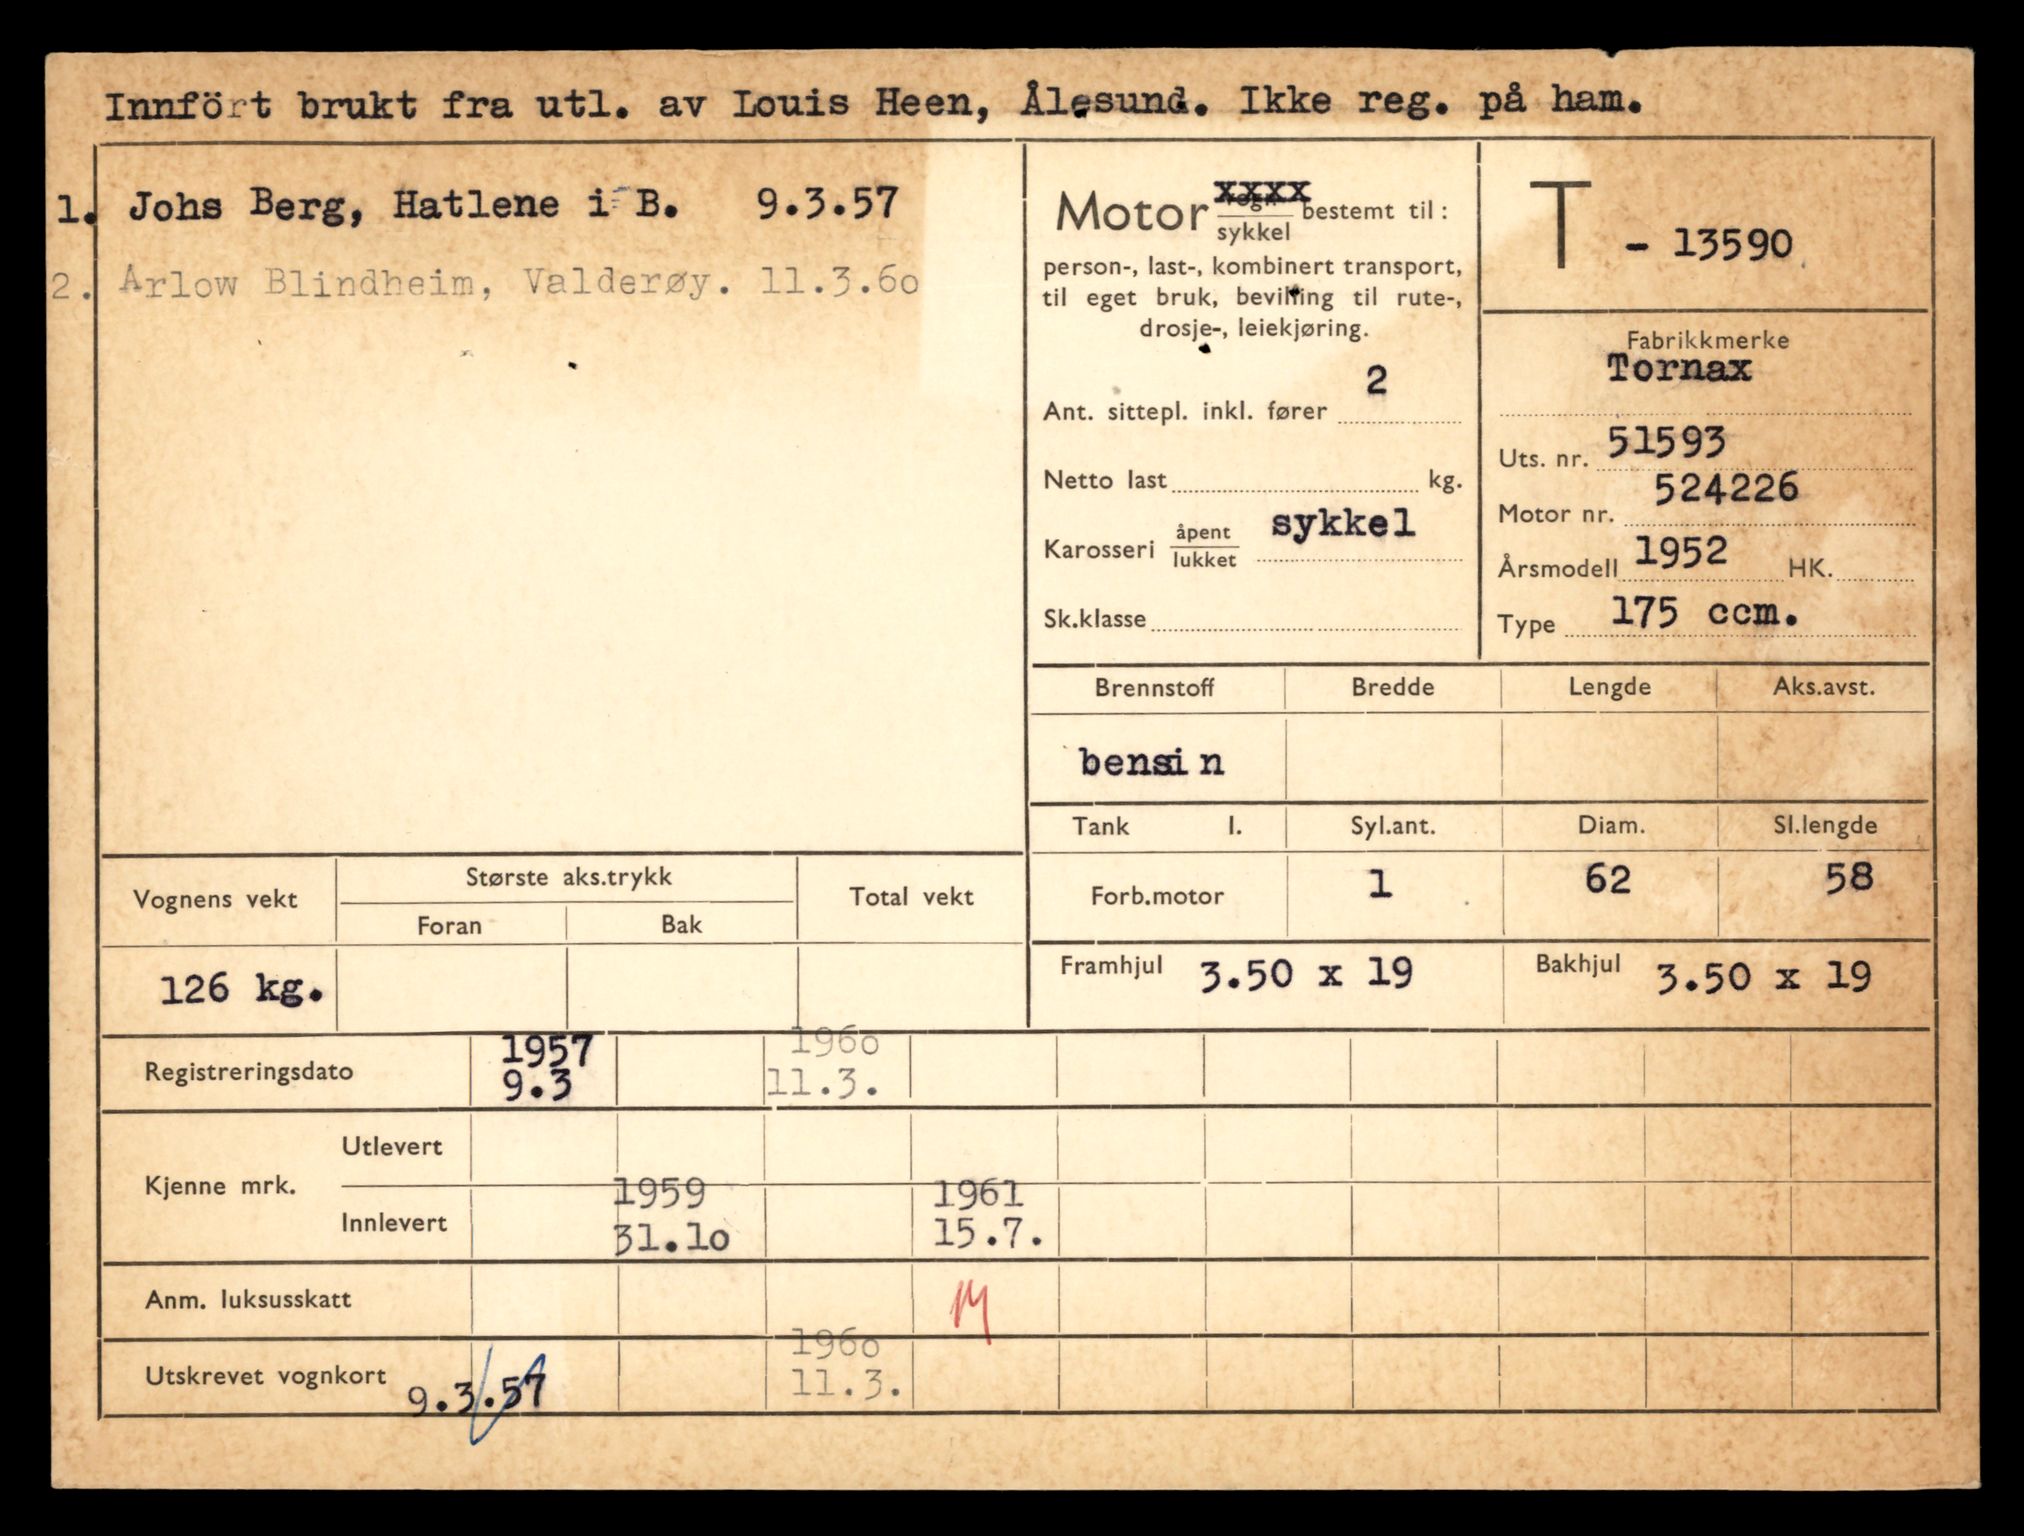 Innfört brukt fra utl. av Louis Heen, Ålesund. Ikke reg. på ham.
1. Johs Berg, Hatlene i B. 9.3.57
2. Arlow Blindheim, Valderøy. 11.3.6o
Motor vogn xxxx
sykkel bestemt til:
person-, last-, kombinert transport,
til eget bruk, bevilling til rute-,
drosje-, leiekjøring.
Ant. sittepl. inkl. fører 2
Netto last kg.
Karosseri åpent
lukket sykkel
Sk.klasse
T - 13590
Fabrikkmerke
Tornax
Uts. nr. 51593
Motor nr. 524226
Årsmodell 1952 HK.
Type 175 ccm.
Brennstoff Bredde Lengde Aks.avst.
bensin
Tank l. Syl.ant. Diam. Sl.lengde
Forb.motor 1 62 58
Framhjul 3.50 x 19 Bakhjul 3.50 x 19
Vognens vekt Største aks.trykk Total vekt
Foran Bak
126 kg.
1957 196o
Registreringsdato 9.3 11.3.
Utlevert
Kjenne mrk.
1959 1961
Innlevert 31.1o 15.7.
Anm. luksusskatt M
196o
Utskrevet vognkort 9.3.57 11.3.